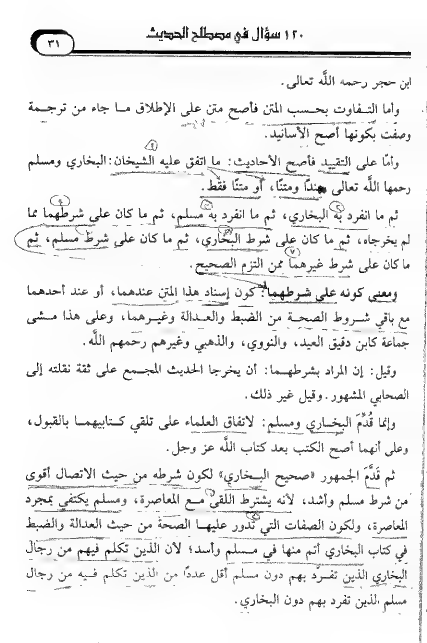 ١٢٠ سؤال في مصطلح الحديث
٣١
ابن حجر رحمه اللَّه تعالى.
وأما التفاوت بحسب المتن فأصح متن على الإطلاق ما جاء من ترجمة
وصفت بكونها أصح الأسانيد.
وأمّا على التقييد فأصح الأحاديث: ما اتفق عليه الشيخان: البخاري ومسلم
رحمها اللَّه تعالى سندًا ومتنًا، أو متنًا فقط.
ثم ما انفرد به البخاري، ثم ما انفرد به مسلم، ثم ما كان على شرطهما مما
لم يخرجاه، ثم ما كان على شرط البخاري، ثم ما كان على شرط مسلم، ثم
ما كان على شرط غيرهما ممن التزم الصحيح.
ومعنى كونه على شرطهما: كون إسناد هذا المتن عندهما، أو عند أحدهما
مع باقي شروط الصحة من الضبط والعدالة وغيرهما، وعلى هذا مشى
جماعة كابن دقيق العيد، والنووي، والذهبي وغيرهم رحمهم اللَّه.
وقيل: إن المراد بشرطهما: أن يخرجا الحديث المجمع على ثقة نقلته إلى
الصحابي المشهور. وقيل غير ذلك.
وإنما قُدِّمَ البخاري ومسلم: لاتفاق العلماء على تلقي كتابيهما بالقبول،
وعلى أنهما أصح الكتب بعد كتاب اللَّه عز وجل.
ثم قَدَّمَ الجمهور «صحيح البخاري» لكون شرطه من حيث الاتصال أقوى
من شرط مسلم وأشد، لأنه يشترط اللقي مع المعاصرة، ومسلم يكتفي بمجرد
المعاصرة، ولكون الصفات التي تدور عليها الصحة من حيث العدالة والضبط
في كتاب البخاري أتم منها في مسلم وأسد؛ لأن الذين تكلم فيهم من رجال
البخاري الذين تفرد بهم دون مسلم أقل عددًا من الذين تكلم فيه من رجال
مسلم الذين تفرد بهم دون البخاري.